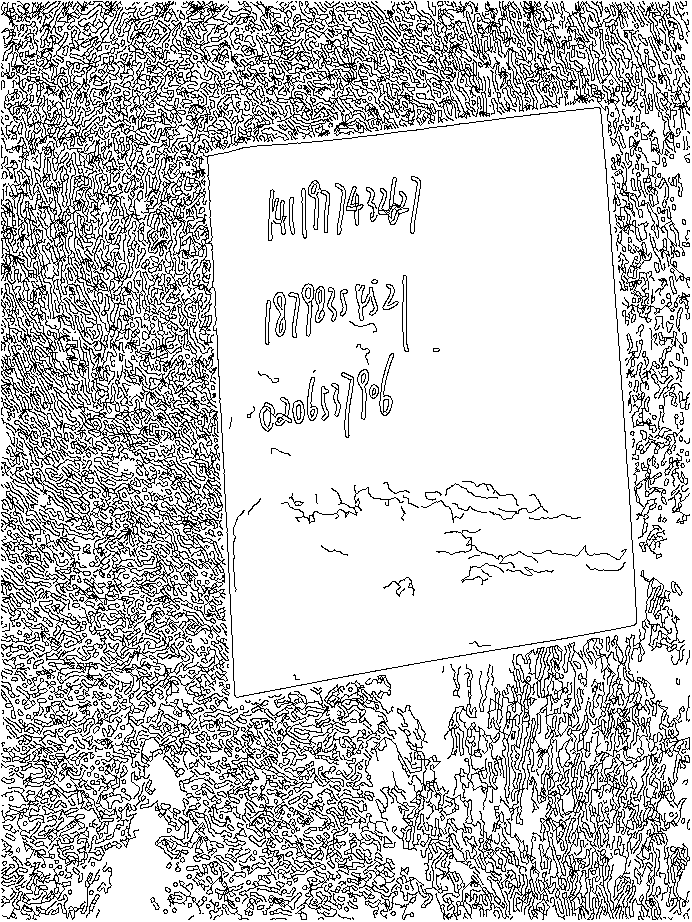 14119774326​21
18798354521
0206537906